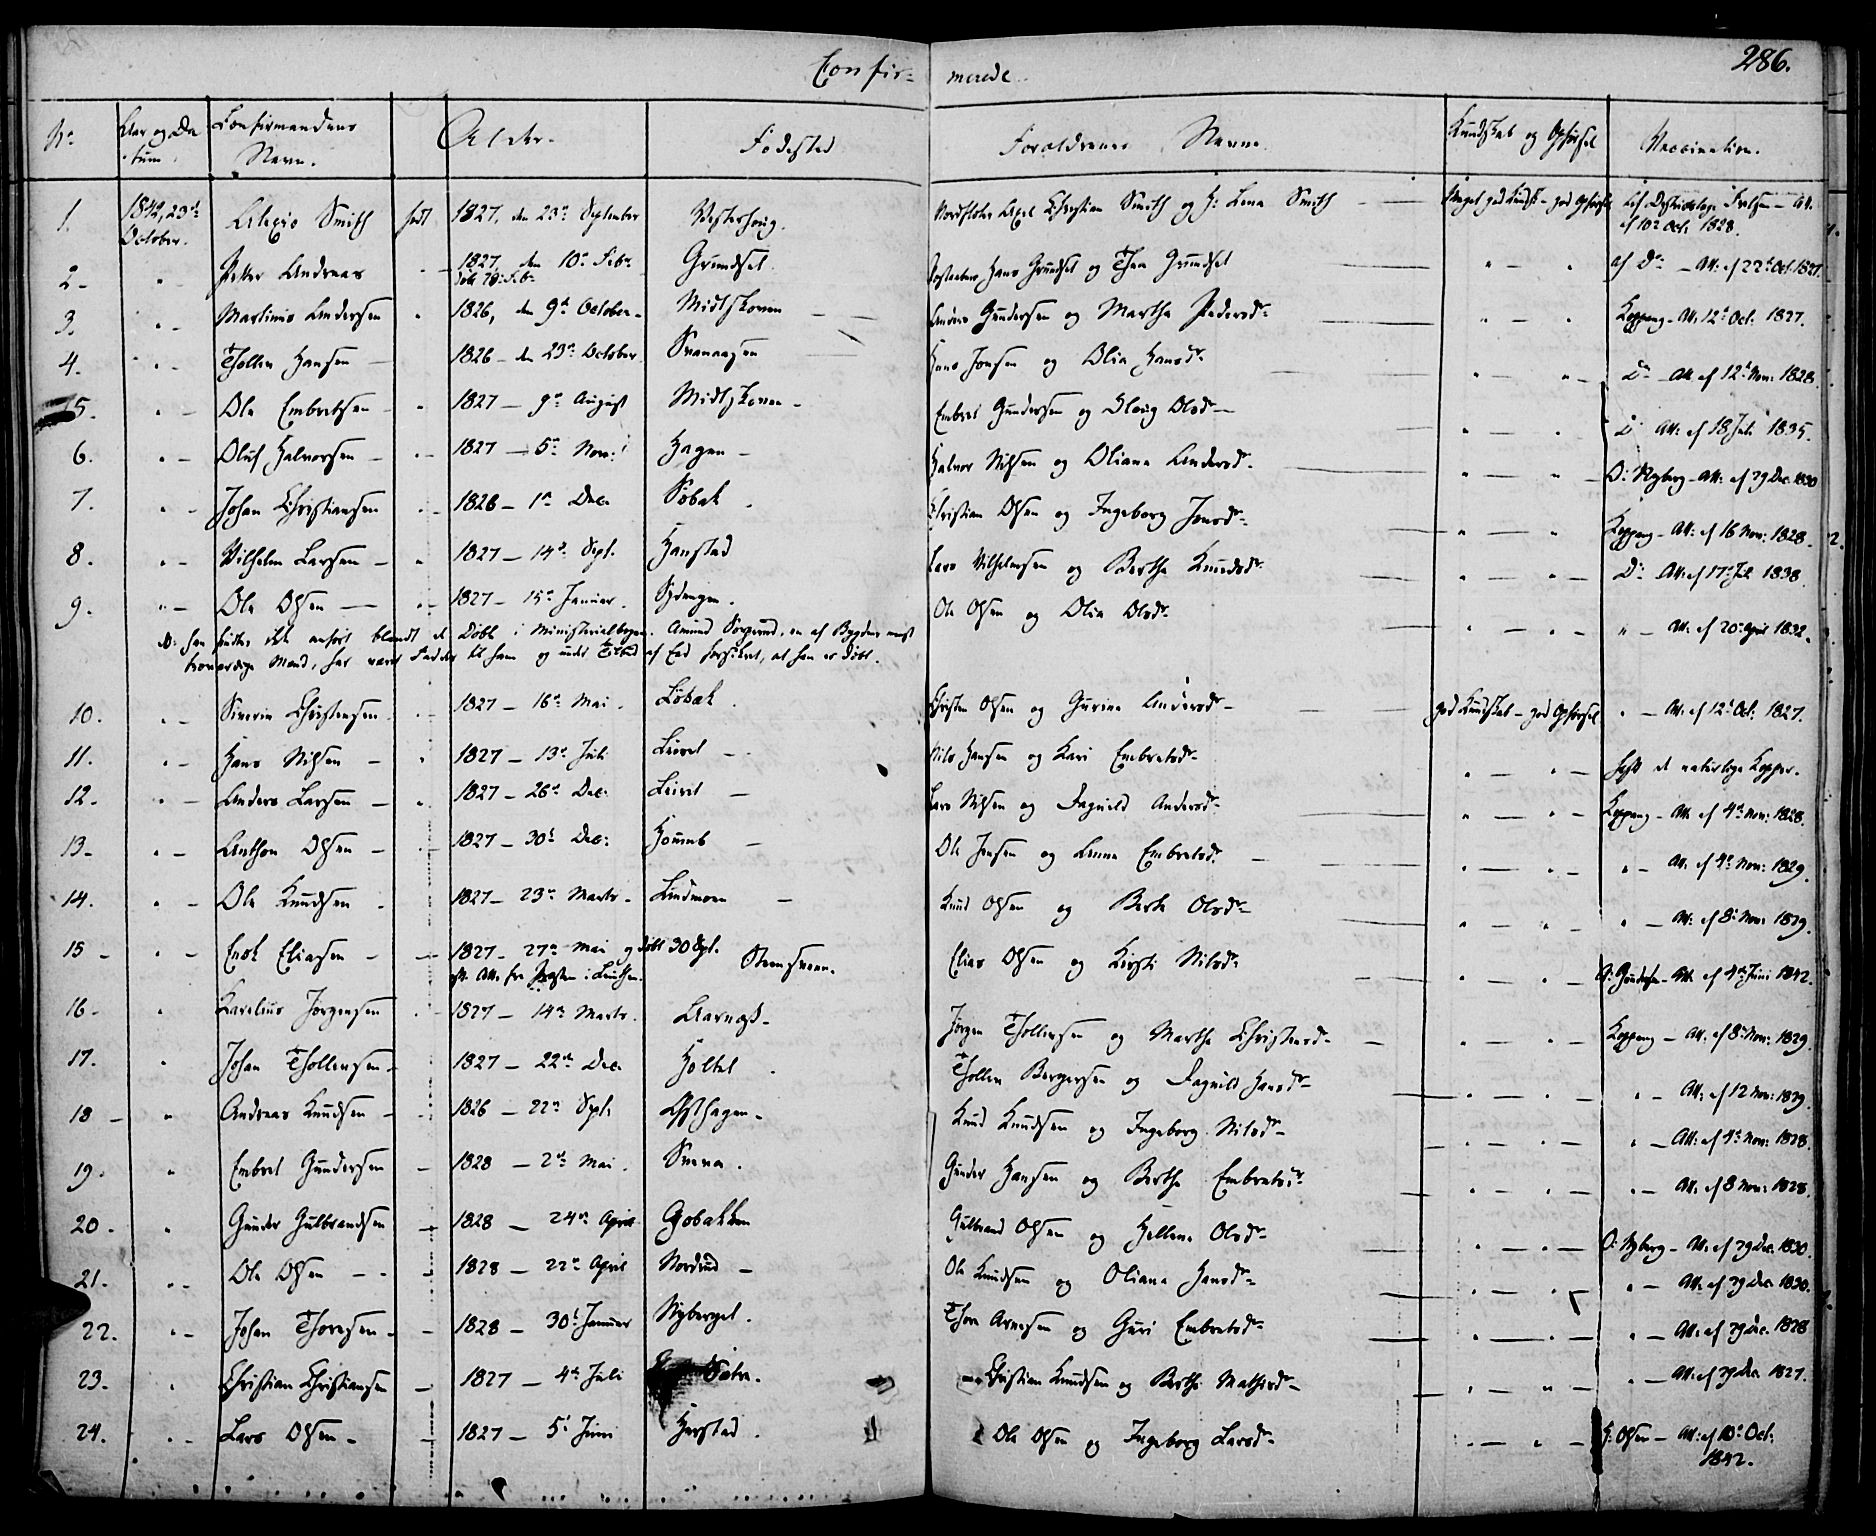 286.
Confir= merede
No. Aar og Da Confirmandens Alder. Fødested Forældrenes Navne. Kundskab og Opførsel Vaccination.
tum. Navn.
1. 1842, 23de Alexis Smith født 1827, den 23de September Vesterhoug. Axel Christian Smith og Lena Smith Meget god Kundsk - god Opførsel Att.
October. af 10de Oct. 1828.
2 - " Peter Andreas " - 1827, den 10de Febr. Grundset Hans Grundset og Thea Grundset " - " af Do - Att: af 22de Oct. 1827.
døbt Febr
3. " - Martinus Andersen " 1826, den 9de October - Midtskoven - - Anders Gundersen og Martha Pedersdr - " - " Koppang - Att. 12te Oct: 1827.
4. " - Thollen Hansen - 1826 - den 23de October. Svenaasen Hans Jonsen og Olia Hansdr " " - Do - Att af 12te Nov: 1828.
5. " - Ole Embretsen - " 1827 - 9de August Midtskoven - Embret Gundersen og Oloug Olsdr - " - " Do Att: af 18 Juli 1835.
6. " - Oluf Halvorsen - " - 1827 - 5te Nov: Hagen - Halvor Nilsen og Oliana Andersdr. " - " - O: Nyberg - Att: af 29 Dec. 1830
7. " - Johan Christiansen " - 1826 - 1ste Dec. Søbak Christian Olsen og Ingeborg Jonsdr - " - " Koppang - Att: af 16 Nov: 1828.
8. " - Vilhelm Larsen - " 1827 - 14de Sept. Hanstad Lars Vilhelmsen og Berthe Knudsdr " - " - Do Att: af 17de Juli 1838.
9. " - Ole Olsen - " - 1827 - 15de Januar. Ole Olsen og Olia Olsdr - " - " - " - Att: af 20de April 1832.
NB: Han findes ikke anført blandt de Døbte i Ministerialbogen. Amund , en af Bygdens mest
troværdige Mænd, har været Fadder til ham og under Tilbud af Eed forsikret, at han er døbt.
10. " - Siverin Christensen " - 1827 - 16de Mai. Løbak. Christen Olsen og Gurine Andersdr - god Kundskab - god Opførsel " - Att: af 12te Oct: 1827.
11. " - Hans Nilsen - " 1827 - 13de Juli Leiret - Nils Hansen og Kari Embretsdr - " - " - havt de naturlige Kopper.
12. " - Anders Larsen - " 1827 - 26de Dec: Leiret - Lars Nilsen og Dagnild Andersdr - " - " - Koppang - Att. af 4de Nov: 1828.
13 - " - Anthon Olsen - " - 1827 - 30te Dec: Houmb - Ole Jensen og Anne Embretsdr - " - " - " - Att. af 4de Nov: 1829.
14. " - Ole Knudsen - 1827 - 23de Marts - Lindmoen - Knud Olsen og Berte Olsdr - " - " - " - Att: af 8de Nov: 1829.
15 - " - Enok Eliasen - - 1827 - 27de Mai og døbt 30 Spt. Stemsveen. Elias Olsen og Kirsti Nilsdr - " - " Att. af 4de Juni 1842.
Att. fra Præsten i Leuthen.
16 - " Karelius Jørgensen " 1827 - 14de Marts. Aarnæs - Jørgen Thollensen og Marthe Christensdr - " - " - Koppang - Att: af 8de Nov: 1829.
17. " Johan Thollensen - 1827 - 22de Dec. Holtet Thollen Børgersen og Dagnild Hansdr - " - " - " - Att: af 12 Nov: 1829.
18 - " Andreas Knudsen - - 1826 - 22de Spt. Østhagen - Knud Knudsen og Ingeborg Nilsdr - " - " - " - Att: af 4de Nov: 1828.
19. " Embret Gundersen - 1828 - 2den Mai. Svena. Gunder Hansen og Berthe Embretsdr - " - " - " - Att: af 8 Nov: 1828.
20 - " Gunder Gulbrandsen - 1828 - 24de April Gobakken Gulbrand Olsen og Hellene Olsdr - " - " - O: Nyberg - Att: af 29 Dec. 1830.
21. " - Ole Olsen - - - 1828 - 22de April Nordrud - Ole Knudsen og Oliana Hansdr - " - " - " - Att: af 29 Dec. 1830.
22. " - Johan Thoresen - - 1828 - 30te Januar Nyberget. Thore Arnesen og Guri Embretsdr - " - " - " - Att: af 29 Dec. 1828
23. " Christian Christiansen - 1827 - 4de Juli Sætre. Christian Knudsen og Berthe Mathisdr - " - " - " - Att: af 29 Dec. 1827.
24. " - Lars Olsen - - 1827 - 5te Juni Harstad. Ole Olsen og Ingeborg Larsdr - " - " - Olsen - Att: af 10de Oct.
1842.